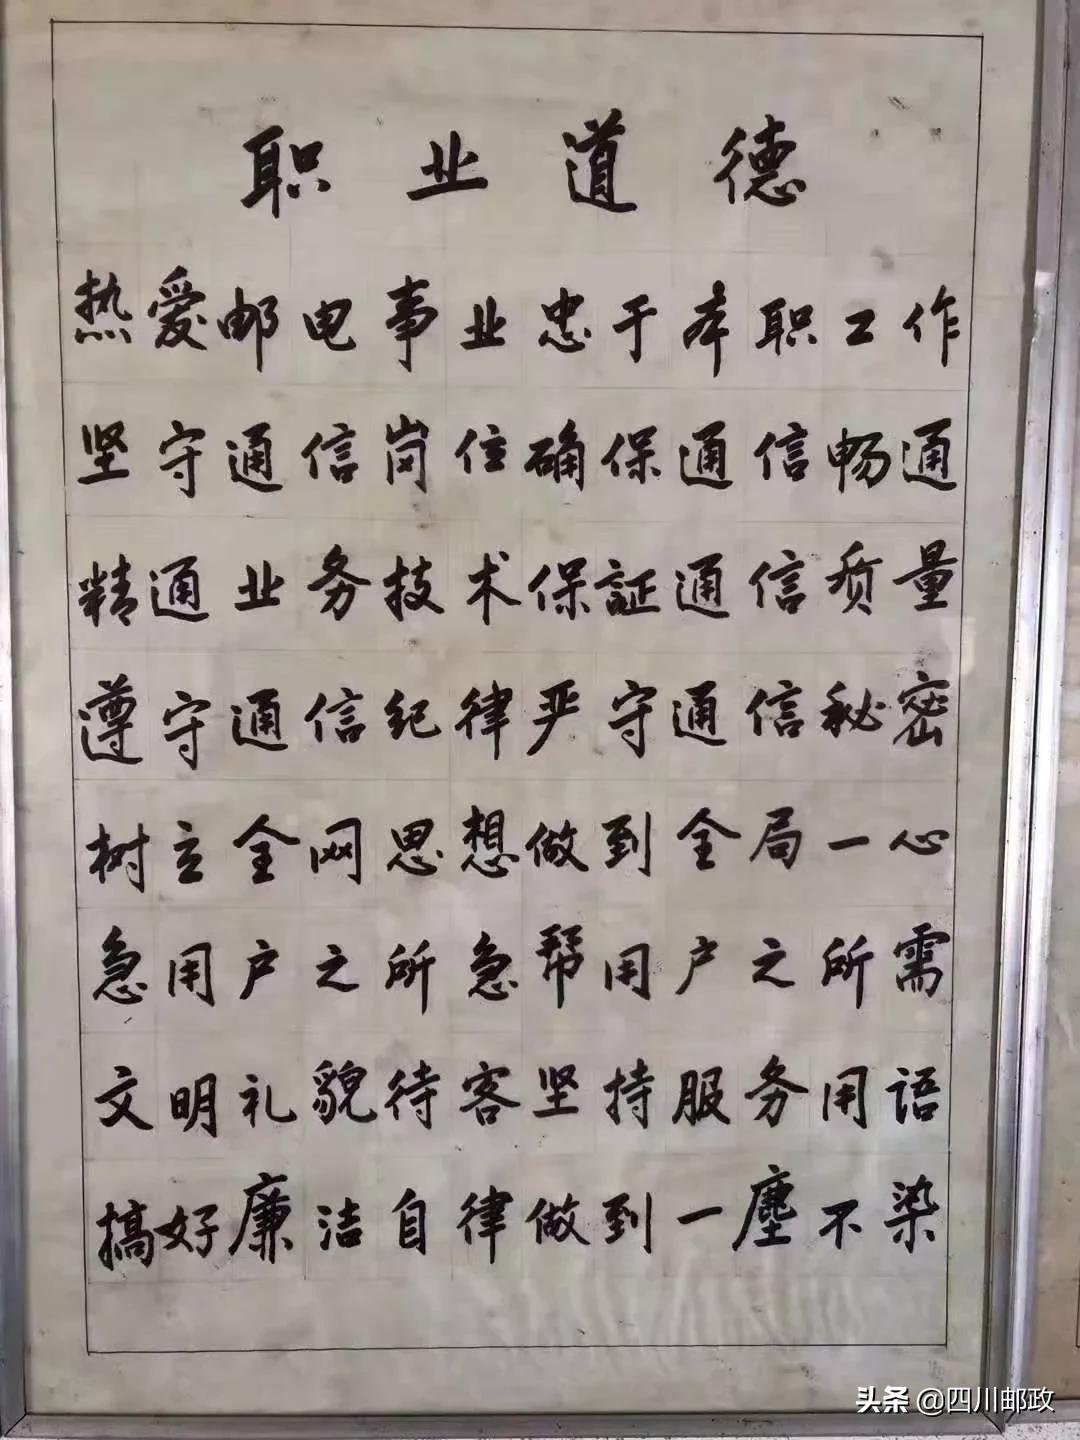 职业道德
热爱邮电事业忠于本职工作
坚守通信岗位确保通信畅通
精通业务技术保証通信质量
遵守通信纪律严守通信秘密
树立全网思想做到全局一心
急用户之所急帮用户之所需
文明礼貌待客坚持服务用语
搞好廉洁自律做到一塵不染
头条 @四川邮政